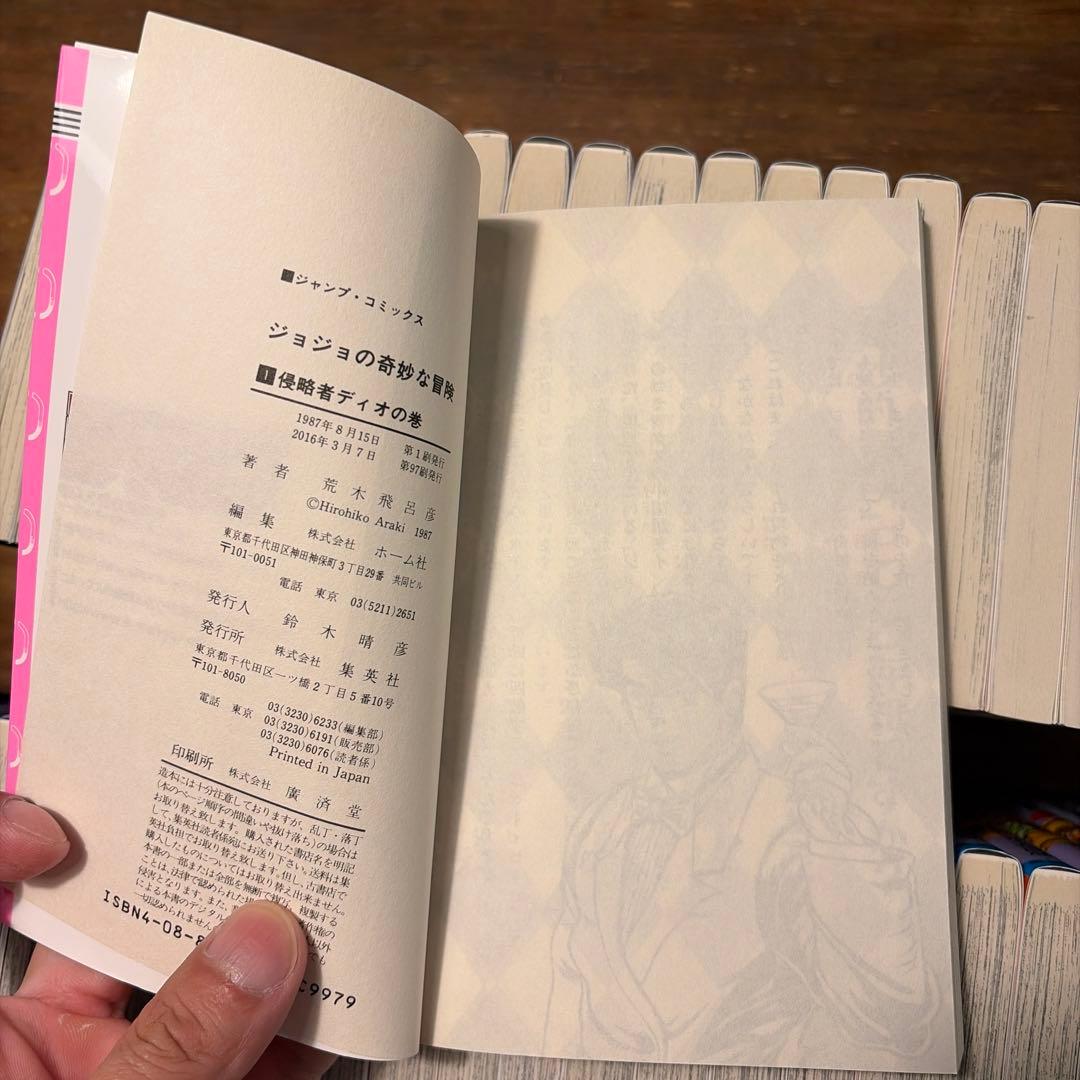 ■ジャンプ・コミックス
ジョジョの奇妙な冒険
1侵略者ディオの巻
1987年8月15日 第1刷発行
2016年3月7日 第97刷発行
著者 荒木飛呂彦
©Hirohiko Araki 1987
編集 株式会社 ホーム社
東京都千代田区神田神保町3丁目29番 共同ビル
〒101-0051
電話 東京 03(5211)2651
発行人 鈴木晴彦
発行所 株式会社 集英社
東京都千代田区一ツ橋2丁目5番10号
〒101-8050
03(3230)6233(編集部)
電話 東京 03(3230)6191(販売部)
03(3230)6076(読者係)
Printed in Japan
印刷所 株式会社 廣済堂
造本には十分注意しておりますが、乱丁・落丁
(本のページ順序の間違いや抜け落ち)の場合は
お取り替え致します。購入された書店名を明記
して、集英社読者係宛にお送り下さい。送料は集
英社負担でお取り替え致します。但し、古書店で
購入したものについてはお取り替え出来ません。
本書の一部または全部を無断で複写、複製する
ことは、法律で認められた
侵害となります。また、
による本書のデジタル
一切認められません
ISBN4-08-8
C9979